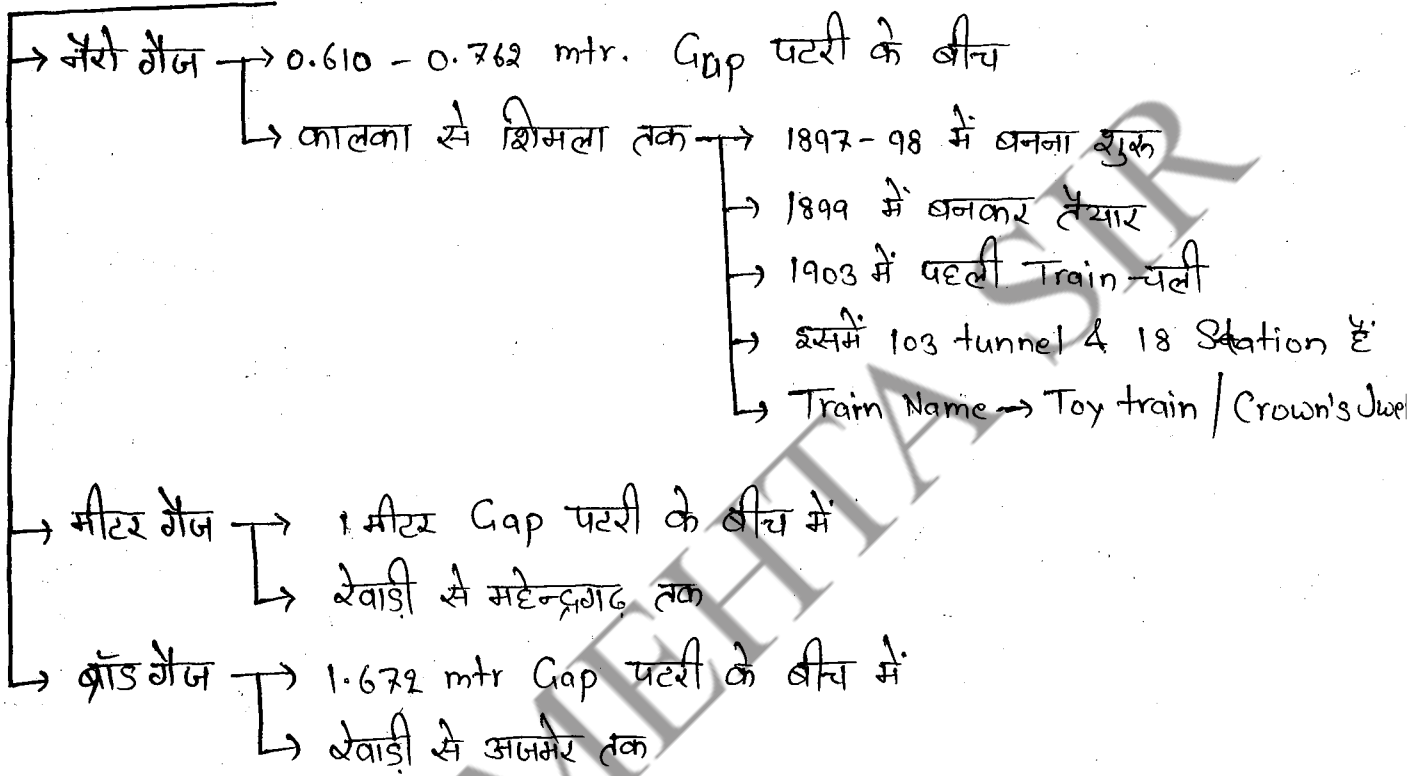 → नैरो गैज → 0.610 - 0.762 mtr. Gap पटरी के बीच
→ कालका से शिमला तक → 1897-98 में बनना शुरू
→ 1899 में बनकर तैयार
→ 1903 में पहली Train चली
→ इसमें 103 tunnel & 18 Station हैं
→ Train Name → Toy train / Crown's Jwel
→ मीटर गैज → 1 मीटर Gap पटरी के बीच में
→ रेवाड़ी से महेन्द्रगढ़ तक
→ ब्रॉड गैज → 1.672 mtr Gap पटरी के बीच में
→ रेवाड़ी से अजमेर तक
MEHTA SIR